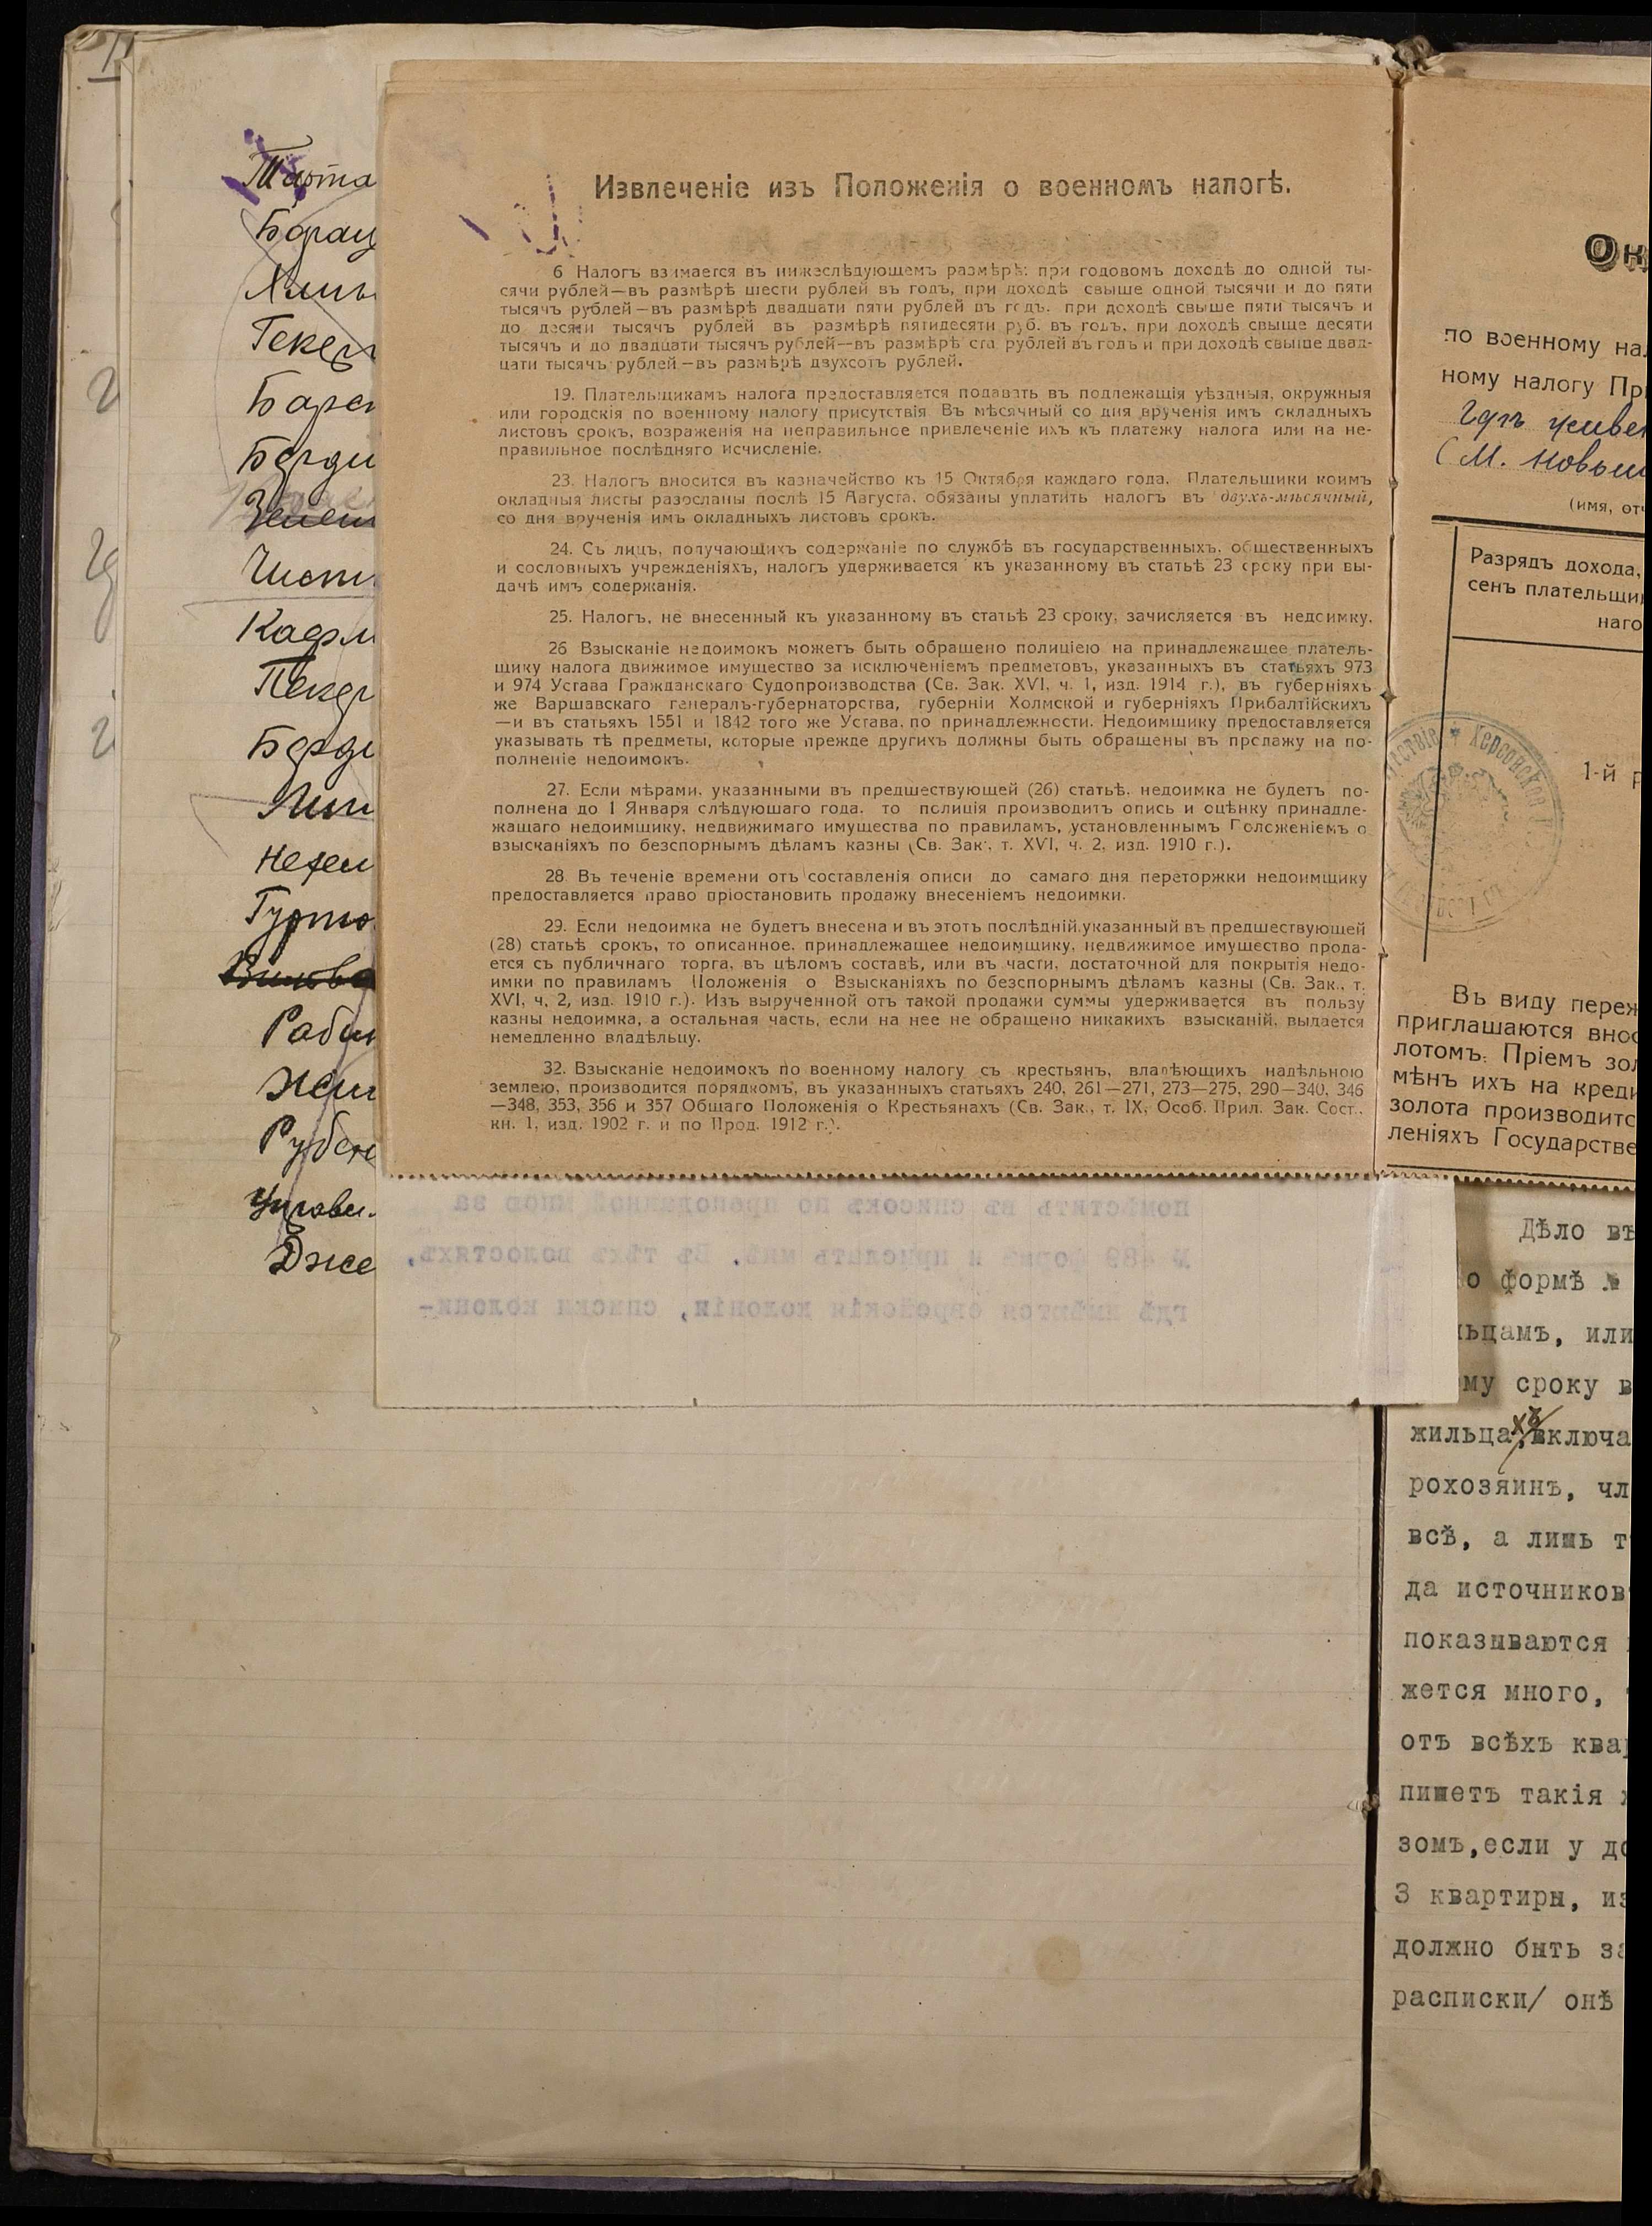 Извлеченіе изъ Положенія о военномъ налогѣ.
6 Налогъ взимается въ нижеслѣдующемъ размѣрѣ: при годовомъ доходѣ до одной ты-
сячи рублей—въ размѣрѣ шести рублей въ годъ, при доходѣ свыше одной тысячи и до пяти
тысячъ рублей—въ размѣрѣ двадцати пяти рублей въ годъ. при доходѣ свыше пяти тысячъ и
до десяти тысячъ рублей въ размѣрѣ пятидесяти руб. въ годъ, при доходѣ свыше десяти
тысячъ и до двадцати тысячъ рублей—въ размѣрѣ ста рублей въ годъ и при доходѣ свыше двад-
цати тысячъ рублей—въ размѣрѣ двухсотъ рублей.
19. Плательщикамъ налога предоставляется подавать въ подлежащія уѣздныя, окружныя
или городскія по военному налогу присутствія въ мѣсячный со дня врученія имъ окладныхъ
листовъ срокъ, возраженія на неправильное привлеченіе ихъ къ платежу налога или на не-
правильное послѣдняго исчисленіе.
23. Налогъ вносится въ казначейство къ 15 Октября каждаго года. Плательщики коимъ
окладныя листы разосланы послѣ 15 Августа, обязаны уплатить налогъ въ двухъ-мѣсячный,
со дня врученія имъ окладныхъ листовъ срокъ.
24. Съ лицъ, получающихъ содержаніе по службѣ въ государственныхъ, общественныхъ
и сословныхъ учрежденіяхъ, налогъ удерживается къ указанному въ статьѣ 23 сроку при вы-
дачѣ имъ содержанія.
25. Налогъ, не внесенный къ указанному въ статьѣ 23 сроку, зачисляется въ недоимку.
26 Взысканіе недоимокъ можетъ быть обращено полиціею на принадлежащее платель-
щику налога движимое имущество за исключеніемъ предметовъ, указанныхъ въ статьяхъ 973
и 974 Устава Гражданскаго Судопроизводства (Св. Зак. XVI, ч. 1, изд. 1914 г.), въ губерніяхъ
же Варшавскаго генералъ-губернаторства, губерніи Холмской и губерніяхъ Прибалтійскихъ
—и въ статьяхъ 1551 и 1842 того же Устава, по принадлежности. Недоимщику предоставляется
указывать тѣ предметы, которые прежде другихъ должны быть обращены въ продажу на по-
полненіе недоимокъ.
27. Если мѣрами, указанными въ предшествующей (26) статьѣ, недоимка не будетъ по-
полнена до 1 Января слѣдующаго года, то полиція производитъ опись и оцѣнку принадле-
жащаго недоимщику, недвижимаго имущества по правиламъ, установленнымъ Положеніемъ о
взысканіяхъ по безспорнымъ дѣламъ казны (Св. Зак., т. XVI, ч. 2, изд. 1910 г.).
28. Въ теченіе времени отъ составленія описи до самаго дня переторжки недоимщику
предоставляется право пріостановить продажу внесеніемъ недоимки.
29. Если недоимка не будетъ внесена и въ этотъ послѣдній, указанный въ предшествующей
(28) статьѣ срокъ, то описанное, принадлежащее недоимщику, недвижимое имущество прода-
ется съ публичнаго торга, въ цѣломъ составѣ, или въ части, достаточной для покрытія недо-
имки по правиламъ Положенія о Взысканіяхъ по безспорнымъ дѣламъ казны (Св. Зак., т.
XVI, ч, 2, изд. 1910 г.). Изъ вырученной отъ такой продажи суммы удерживается въ пользу
казны недоимка, а остальная часть, если на нее не обращено никакихъ взысканій, выдается
немедленно владѣльцу.
32. Взысканіе недоимокъ по военному налогу съ крестьянъ, владѣющихъ надѣльною
землею, производится порядкомъ, въ указанныхъ статьяхъ 240, 261—271, 273—275, 290—340, 346
—348, 353, 356 и 357 Общаго Положенія о Крестьянахъ (Св. Зак., т. IX, Особ. Прил. Зак. Сост.,
кн. 1, изд. 1902 г. и по Прод. 1912 г.).
помѣстить въ списокъ по преподанной мною за
№ 489 формѣ и прислать мнѣ. Въ тѣхъ волостяхъ,
гдѣ имѣются еврейскія колоніи, списки колони-
Барат
Текер
Берди
Чист
Пекер
Рабин
Рубен
Дже
по военному на
ному налогу Пр
(М. Новый
(имя, от
Разрядъ дохода,
сенъ плательщи
наго
1-й р
Херсонское
Въ виду переж
приглашаются внос
лотомъ. Пріемъ зол
мѣнъ ихъ на креди
золота производитс
леніяхъ Государстве
Дѣло въ
о формѣ №
льцамъ, или
му сроку в
жильцахъ, включа
рохозяинъ, чл
всѣ, а лишь т
да источников
показываются
жется много,
отъ всѣхъ ква
пишетъ такія
зомъ,если у до
3 квартиры, из
должно быть за
расписки/ онѣ